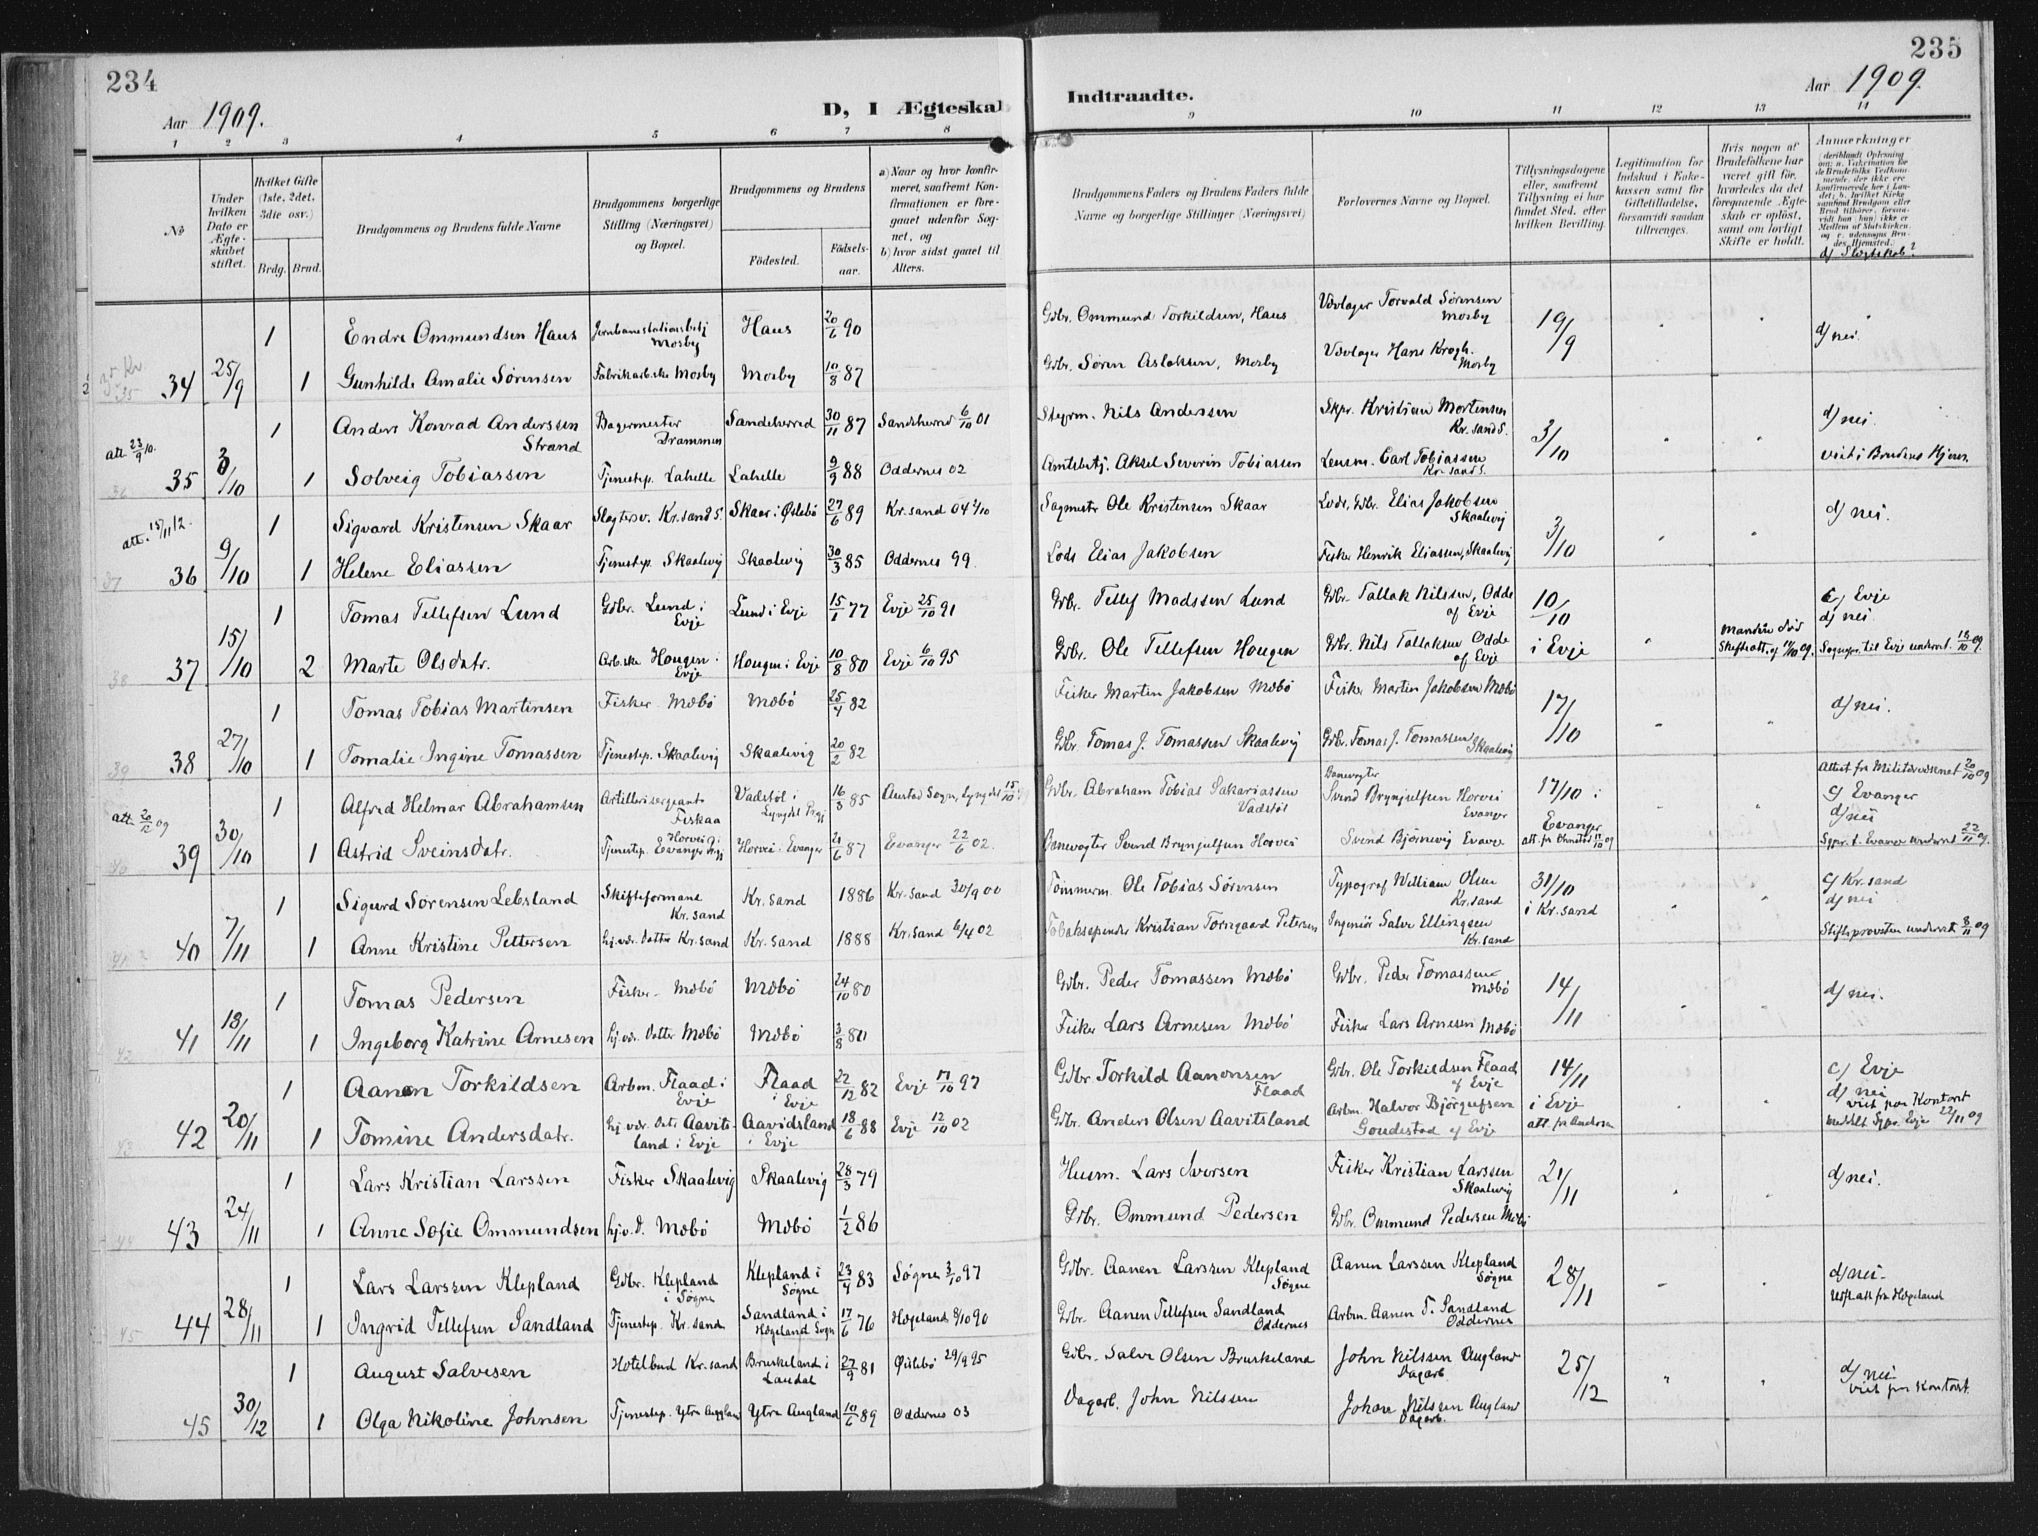 234
Aar 1909.
D, I Ægteskab
1 2 3 4 5 6 7 8
No
Under hvilken Dato er Ægteskabet stiftet.
Hvilket Gifte (1ste, 2det, 3die osv.)
Brdg. Brud.
Brudgommens og Brudens fulde Navne
Brudgommens borgerlige Stilling (Næringsvei) og Bopæl.
Brudgommens og Brudens
Födested. Födselsaar.
a) Naar og hvor konfirmeret, saafremt Konfirmationen er foregaaet udenfor Sognet, og
b) hvor sidst gaaet til Alters.
1 Endre Ommundsen Haus Jernbanestationsbetj Mosby Haus 20/6 90
34 25/9 1 Gunhilde Amalie Sørensen Fabrikarb.ske Mosby Mosby 10/8 87
att. 23/9 10.
1 Anders Konrad Anderssen Strand Bagermester Drammen Sandeherred 30/11 87 Sandeherred 6/10 01
35 3/10 1 Solveig Tobiassen Tjenestep. Lahelle Lahelle 9/9 88 Oddernes 02
att. 15/11 12.
1 Sigvard Kristensen Skaar Slagtersv. Kr.sand S. Skaar i Øslebø 27/6 89 Kr.sand 04 1/10
36 9/10 1 Helene Eliassen Tjenestep. Skaalevig Skaalevig 30/3 85 Oddernes 99.
1 Tomas Tellefsen Lund Gdbr. Lund i Evje Lund i Evje 15/1 77 Evje 25/10 91
37 15/10 2 Marte Olsdatr. Arb.ske Hougen i Evje Hougen i Evje 10/8 80 Evje 6/10 95
1 Tomas Tobias Martinsen Fisker Mæbø Mæbø 25/4 82
38 27/10 1 Tomalie Ingine Tomassen Tjenestep. Skaalevig Skaalevig 20/2 82
att. 20/12 09
1 Alfred Helmar Abrahamsen Artillerisergeant Fiskaa Vadstøl i Lyngdal Prgj 16/3 85 Austad Sogn, Lyngdal 15/10
39 30/10 1 Astrid Sveinsdatr. Tjenestep. Horvei i Evanger Prgj Horvei i Evanger 21/6 87 Evanger 22/6 02.
1 Sigurd Sørensen Lebsland Skifteformand Kr.sand Kr.sand 1886 Kr.sand 30/9 00
40 7/11 1 Anne Kristine Pettersen hj.vær. Datter Kr.sand Kr.sand 1888 Kr.sand 6/4 02
1 Tomas Pedersen Fisker Mæbø Mæbø 24/10 80
41 13/11 1 Ingeborg Katrine Arnesen hj.vær. Datter Mæbø Mæbø 3/8 80
1 Aanon Torkildsen Arbm. Flaad i Evje Flaad i Evje 22/12 82 Evje 17/10 97
42 20/11 1 Tomine Andersdatr. hj.vær. Datr. Aavitsland i Evje Aavidsland i Evje 18/6 88 Evje 12/10 02
1 Lars Kristian Larssen Fisker Skaalevig Skaalevig 28/3 79
43 24/11 1 Anne Sofie Ommundsen hj.v.D. Mæbø Mæbø 1/2 86
1 Lars Larssen Klepland Gdbr. Klepland i Søgne Klepland i Søgne 23/4 83 Søgne 3/10 97
44 28/11 1 Ingrid Tellefsen Sandland Tjenestep. Kr.sand Sandland i Hægeland Sogn 17/6 76 Hægeland 5/10 90
1 August Salvesen Hotelbud Kr.sand Bruskeland i Laudal 27/9 81 Øislebø 29/9 95
45 30/12 1 Olga Nikoline Johnsen Tjenestep. Ytre Augland Ytre Augland 10/6 89 Oddernes 03
235
Indtraadte.
Aar 1909.
9 10 11 12 13 14
Brudgommens Faders og Brudens Faders fulde Navne og borgerlige Stillinger (Næringsvei)
Forlovernes Navne og Bopæl.
Tillysningsdagene eller, saafremt Tillysning ei har fundet Sted, efter hvilken Bevilling.
Legitimation for Indskud i Enkekassen samt for Giftetilladelse, forsaavidt saadan tiltrænges.
Hvis nogen af Brudefolkene har været gift før, hvorledes da det foregaaende Ægteskab er oplöst, samt om lovligt Skifte er holdt.
Anmærkninger
d) Slegtskab?
Gdbr. Ommund Torkildsen, Haus Vævlager Torvald Sørensen Mosby 19/9 d/ nei.
Gdbr. Søren Aslaksen, Mosby Vævlager Hans Krogh. Mosby
Styrm. Nils Anderssen Skpr. Kristian Mortensen Kr.sand S. 3/10 d/ nei.
Amtsbetj. Aksel Severin Tobiassen Lensm. Carl Tobiassen Kr.sand S. viet i Brudens Hjem.
Sagmestr Ole Kristensen Skaar Lods, Gdbr. Elias Jakobsen Skaalevig 3/10 d/ nei.
Lods Elias Jakobsen Fisker Henrik Eliassen, Skaalevig
Gdbr. Tellef Madssen Lund Gdbr. Tallak Nilssen, Odde af Evje 10/10 c/ Evje d/ nei.
Gdbr. Ole Tellefsen Hougen Gdbr. Nils Tallaksen Odde af Evje i Evje Manden død Skifteatt. af 11/10 09. Sognepr. til Evje underret. 18/10 09.
Fisker Martin Jakobsen Mæbø Fisker Martin Jakobsen Mæbø 17/10 d/ nei.
Gdbr. Tomas J. Tomassen Skaalevig Gdbr. Tomas J. Tomassen Skaalevig
Gdbr. Abraham Tobias Sakariassen Vadstøl Banevogter Svend Brynjulfsen Horvei Evanger 17/10 i Attest fra Militærvæsenet 20/10 09 c/ Evanger d/ nei
Banevogter Svend Brynjulfsen Horvei Svend Bjørnevig Evanger Evanger Sgpr. t. Evanger underret 22/11 09.
Tømmerm. Ole Tobias Sørensen Typograf William Olsen Kr.sand 31/10 i Kr.sand c/ Kr.sand d/ nei
Tobaksspinder Kristian Torngaard Petersen Ingeniör Salve Ellingsen Kr.sand Stiftsprovsten underret 8/11 09
Gdbr. Peder Tomassen Mæbø Gdbr. Peder Tomassen Mæbø 14/11 d/ nei.
Fisker Lars Arnesen Mæbø Fisker Lars Arnesen Mæbø
Gdbr Torkild Aanonsen Flaad Gdbr. Ole Torkildsen Flaad af Evje 14/11 c/ Evje d/ nei
Gdbr. Anders Olsen Aavitsland Arbm. Halvor Björgufsen Goudestad af Evje i Evje viet paa Kontoret meddelt Sgpr. Evje 22/11 09
Husm. Lars Iversen Fisker Kristian Larssen Skaalevig 21/11 d/ nei.
Gdbr. Ommund Pedersen Gdbr. Ommund Pedersen Mæbø
Gdbr. Aanen Larssen Klepland Søgne Aanen Larssen Klepland Søgne 28/11 d/ nei.
Gdbr. Aanen Tellefsen Sandland Oddernes Arbm. Aanen T. Sandland Oddernes Udfl.att fra Hægeland
Gdbr. Salve Olsen Bruskeland John Nilssen Augland Dagarb. 25/12 d/ nei viet paa Kontoret.
Dagarb. John Nilssen Johan Nilssen Augland Dagarb.